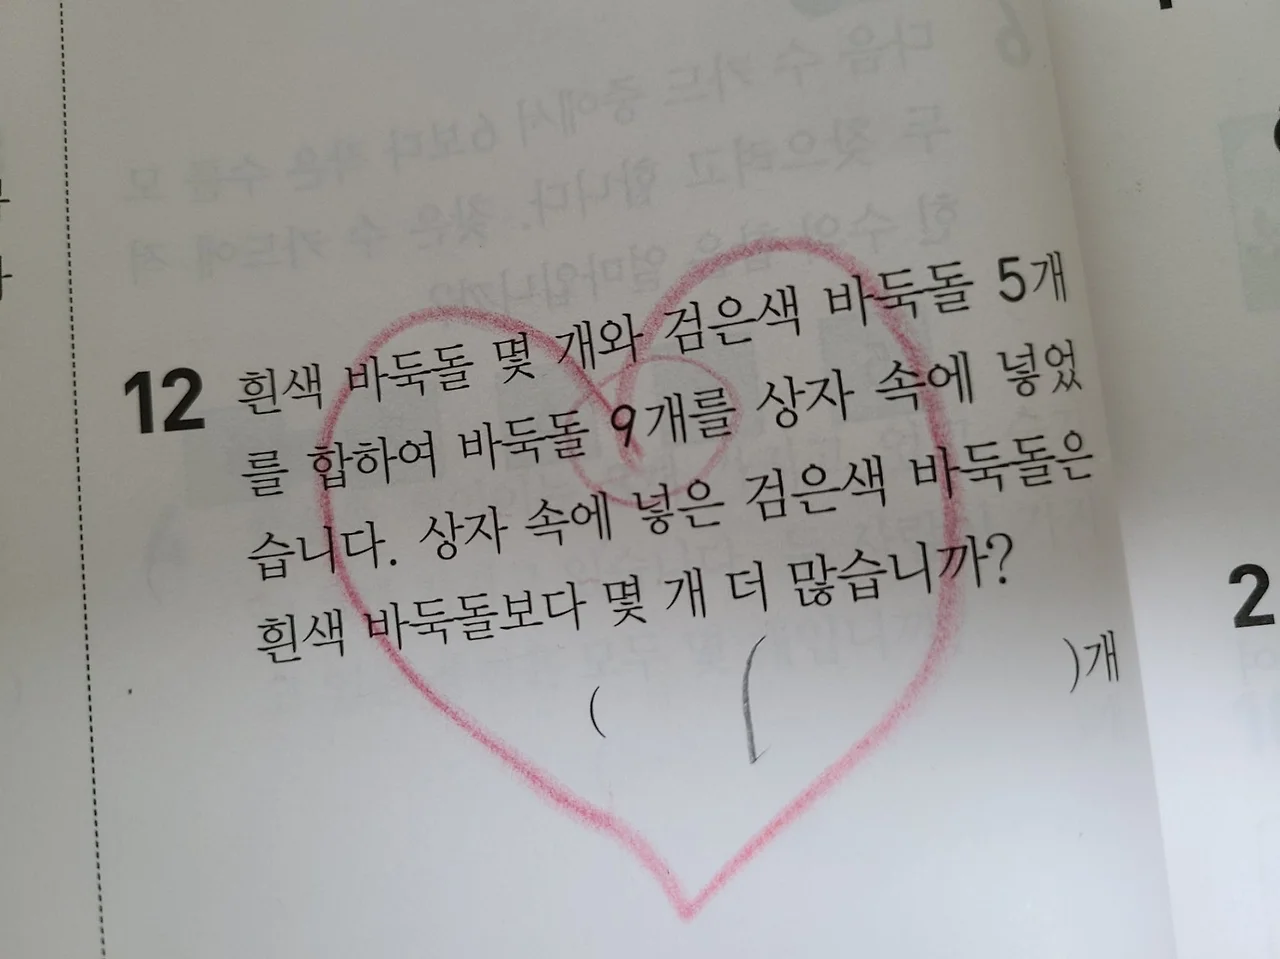 12 흰색 바둑돌 몇 개와 검은색 바둑돌 5개
를 합하여 바둑돌 9개를 상자 속에 넣었
습니다. 상자 속에 넣은 검은색 바둑돌은
흰색 바둑돌보다 몇 개 더 많습니까?
( )개
2